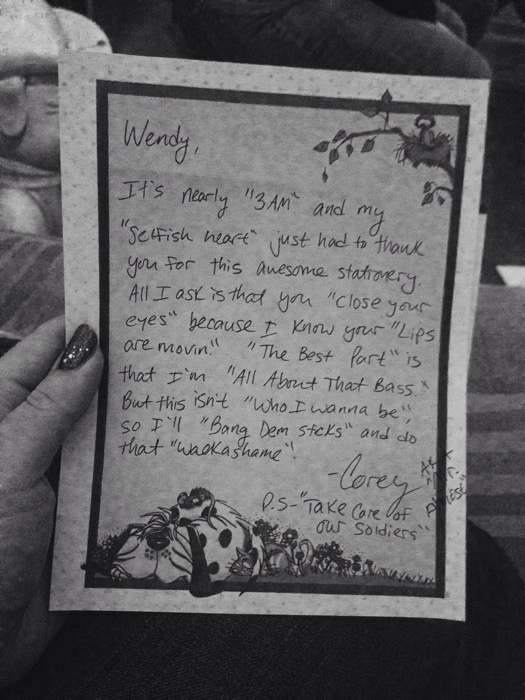 Wendy,
It's nearly "3AM" and my
"Selfish heart" just had to thank
you for this awesome stationery.
All I ask is that you "close your
eyes" because I know your "Lips
are movin." "The Best Part" is
that I'm "All About That Bass."
But this isn't "Who I wanna be",
so I'll "Bang Dem Sticks" and do
that "Walkashame"!
-Corey
P.S-"Take Care of
our Soldiers"